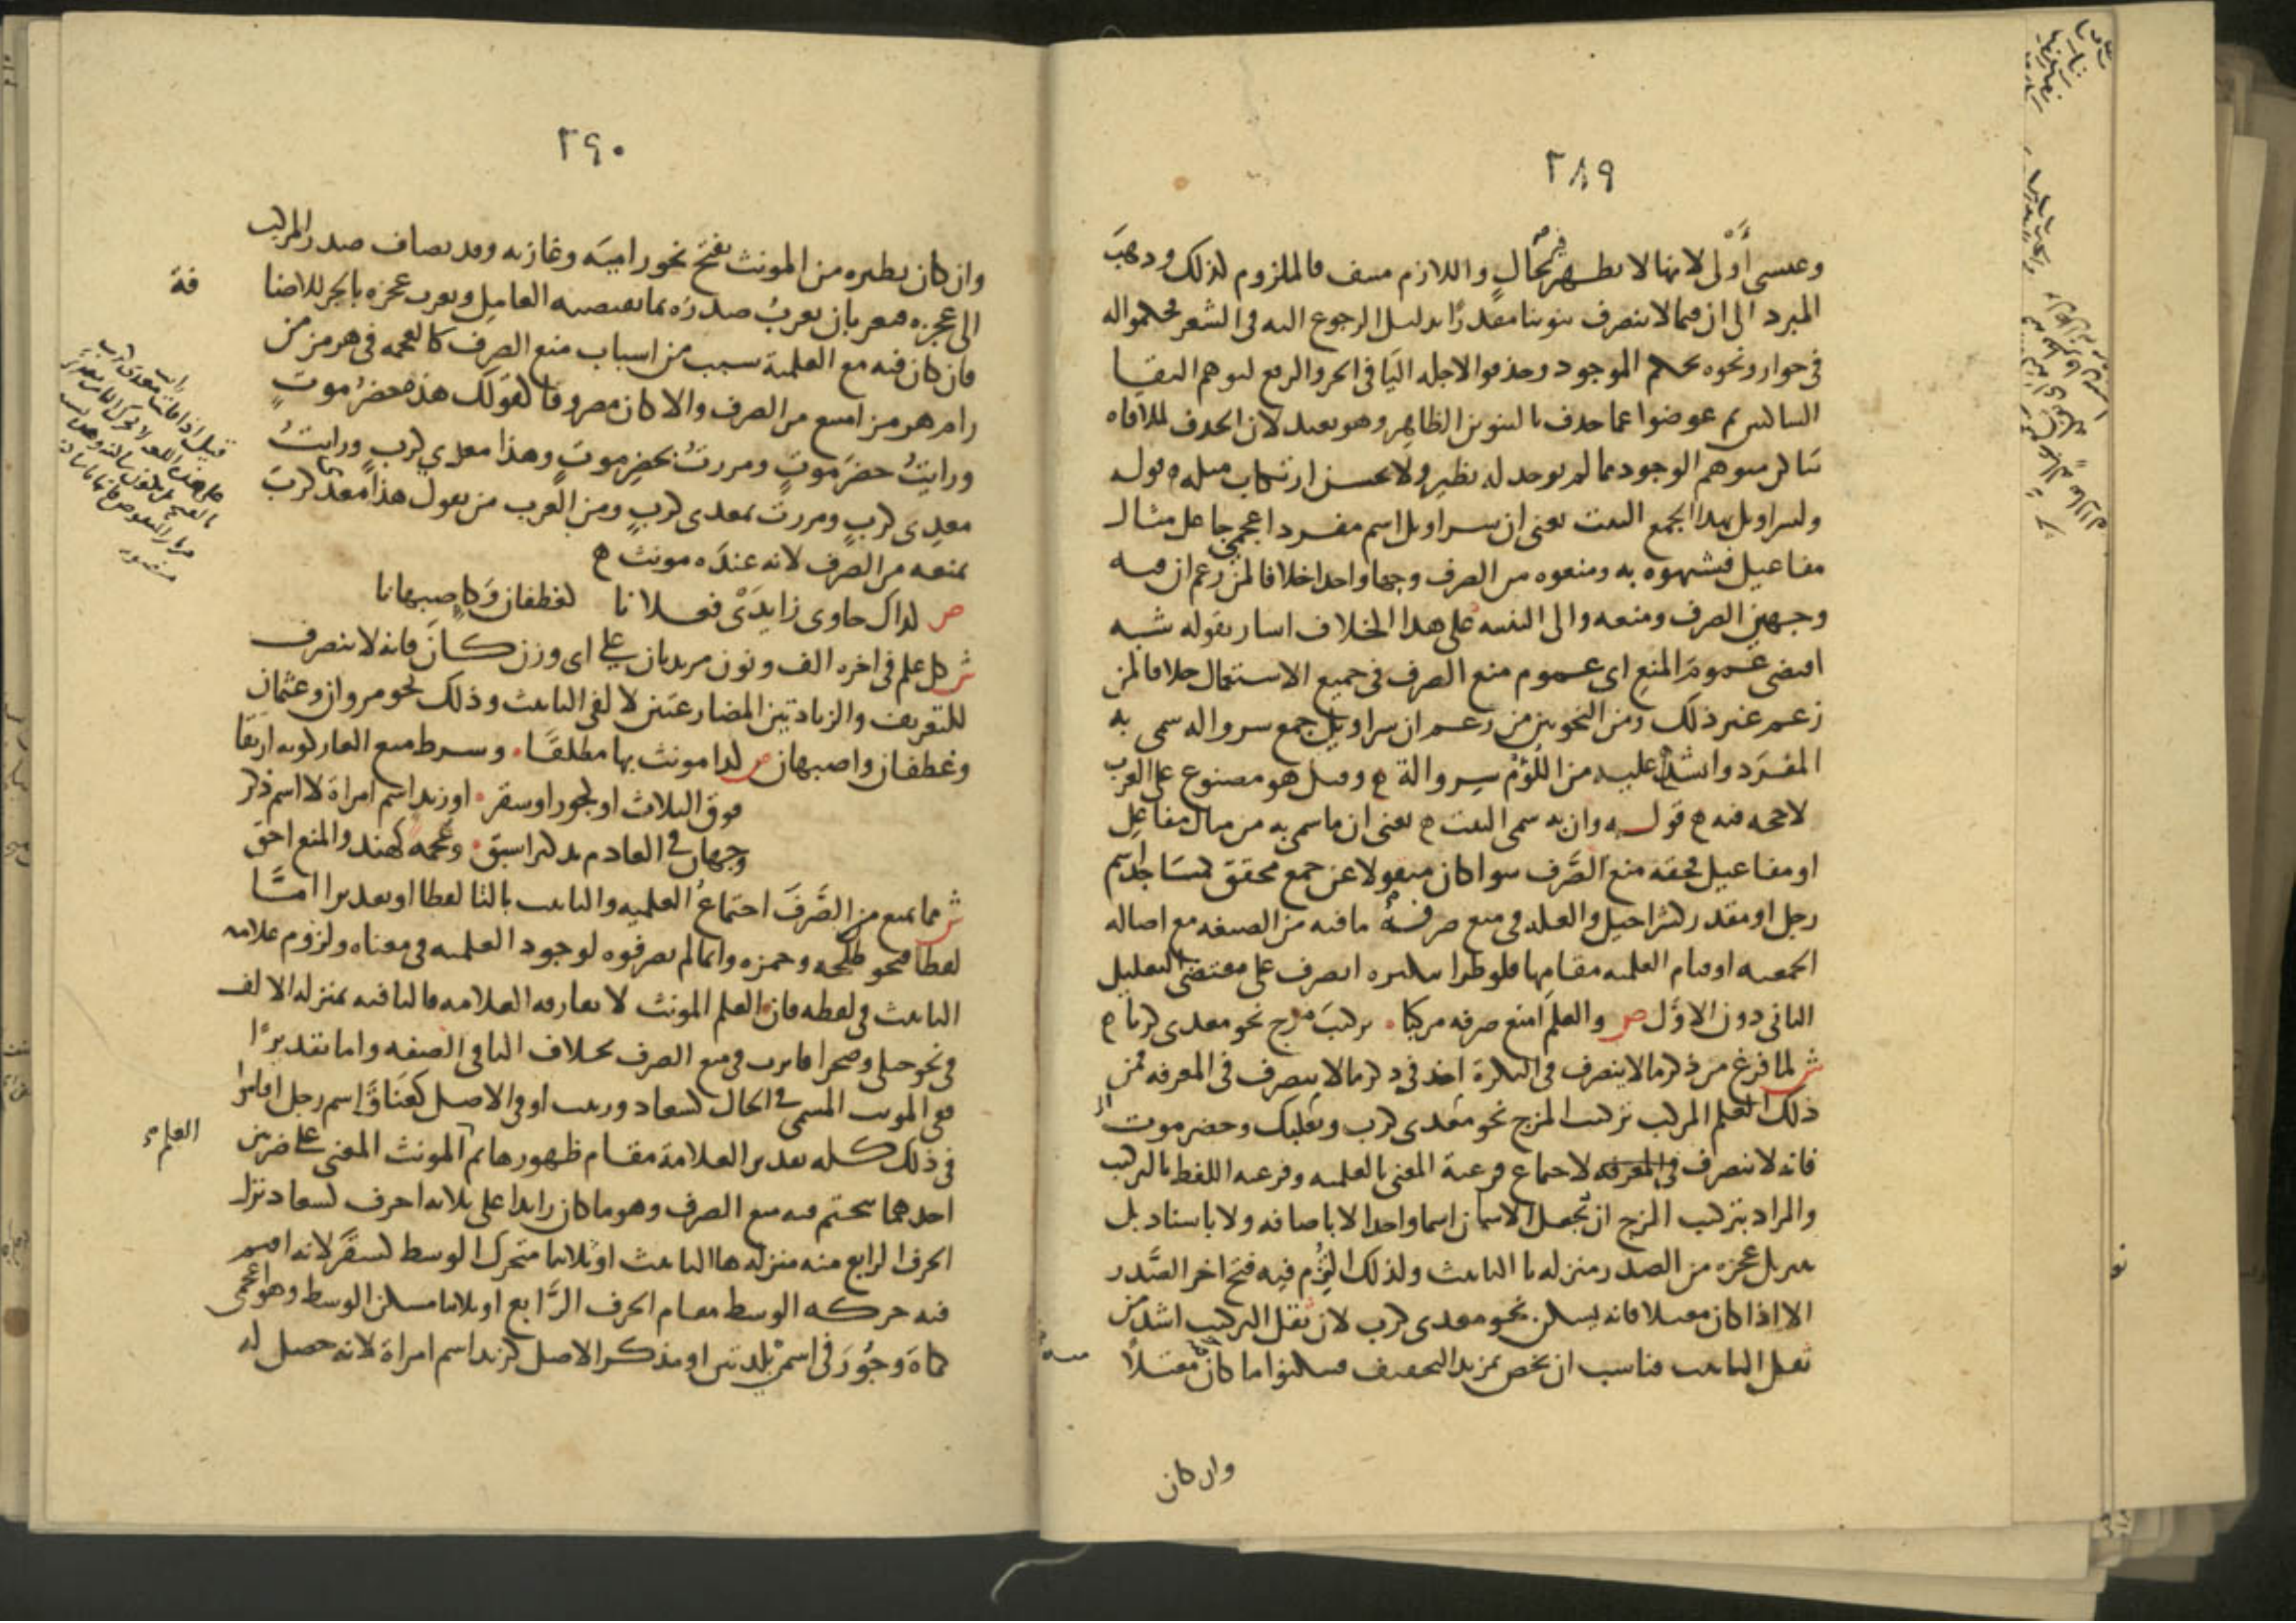 ٢٨٩
وعيسى أولى لانها لا تظهر فيه بحال واللازم منتف فالملزوم لذلك وذهب
المبرد الى ان فيما لا ينصرف تنوينا مقدرًا بدليل الرجوع اليه في الشعر فحكموا له
في جوار ونحوه بحكم الموجود وحذفوا لاجله اليا في الجر والرفع لتوهم التقا
الساكنين ثم عوضوا عما حذف بالتنوين الظاهر وهو بعيد لان الحذف لملاقاة
ساكن متوهم الوجود مما لم يوجد له نظير ولا يحسن ارتكاب مثله ه قوله
ولسراويل بهذا الجمع البيت يعني ان سراويل اسم مفرد اعجمي جا على مثال
مفاعيل فشبهوه به ومنعوه من الصرف وجها واحدا خلافا لمن زعم ان فيه
وجهين الصرف ومنعه والى التنبيه على هذا الخلاف اشار بقوله شبه
اقتضى عموم المنع اى عموم منع الصرف في جميع الاستعمال خلافا لمن
زعم غير ذلك ومن النحويين من زعم ان سراويل جمع سروالة سمى به
المفرد وانشد عليه من اللؤم سروالة ه وقيل هو مصنوع على العرب
لا حجة فيه ه قوله وان به سمى البيت ه يعني ان ما سمى به من مثال مفاعل
او مفاعيل فحقه منع الصرف سوا كان منقولا عن جمع محقق كمساجد اسم
رجل او مقدر كشراحيل والعلة في منع صرفه ما فيه من الصيغه مع اصالة
الجمعيه او قيام العلميه مقامها فلو طرا تنكيره انصرف على مقتضى التعليل
الثاني دون الاول ص والعلم امنع صرفه مركبا • تركيب مزج نحو معدى كربا ه
ش لما فرغ من ذكر ما لا ينصرف في النكرة اخذ في ذكر ما لا ينصرف في المعرفه فمن
ذلك العلم المركب تركيب المزج نحو معدى كرب وبعلبك وحضرموت
فانه لا ينصرف في المعرفه لاجتماع فرعية المعنى بالعلميه وفرعيه اللفظ بالتركيب
والمراد بتركيب المزج ان تجعل الاسمان اسما واحدا لا باضافه ولا باسناد بل
بتنزيل عجزه من الصدر منزله تا التانيث ولذلك التزم فيه فتح اخر الصدر
الا اذا كان معتلا فانه يسكن نحو معدى كرب لان ثقل التركيب اشد من
ثقل التانيث فناسب ان يخص بمزيد التخفيف فسكنوا ما كان معتلاً
وان كان
٢٩٠
وان كان نظيره من المونث يفتح نحو رامية وغازيه وقد يضاف صدر المركب
الى عجزه فيعربان يعرب صدره بما يقتضيه العامل ويعرب عجزه بالجر للاضا
فة
فان كان فيه مع العلمية سبب من اسباب منع الصرف كالعجمه في هرمز من
رام هرمز امتنع من الصرف والا كان مصروفا كقولك هذه حضرُ موتٍ
ورايتُ حضرَ موتٍ ومررتُ بحضرِ موتٍ وهذا معدي كربٍ ورايتُ
معدى كربٍ ومررت بمعدى كربٍ ومن العرب من يقول هذا معدى كرب
يمنعه من الصرف لانه عنده مونث ه
ص كذاك حاوى زايدَىْ فعلانا لغطفان وكاصبهانا
ش كل علم في اخره الف ونون مزيدتان على اى وزن كان فانه لا ينصرف
للتعريف والزيادتين المضارعتين لالفي التانيث وذلك نحو مروان وعثمان
وغطفان واصبهان ص كذا مونث بها مطلقًا • وشرط منع العار كونه ارتقا
فوق الثلاث او كجور او سقر • او زيد اسم امراة لا اسم ذكر
وجهان في العادم تذكيرا سبق • وعجمة كهند والمنع احق
ش مما يمنع من الصرف اجتماع العلميه والتانيث بالتا لفظا او تقديرا امّا
لفظا فنحو طلحه وحمزه وانما لم يصرفوه لوجود العلميه في معناه ولزوم علامه
التانيث في لفظه فان العلم المونث لا تفارقه العلامه فالتا فيه بمنزله الالف
في نحو حبلى وصحرا فاثرت في منع الصرف بخلاف التا في الصفه واما تقديرًا
ففي المونث المسمى في الحال كسعاد وزينب او في الاصل كعناق اسم رجل اقاموا
في ذلك كله تقدير العلامة مقام ظهورها ثم المونث المعنى على ضربين
العلم
احدهما يتحتم فيه منع الصرف وهو ما كان زايدا على ثلاثه احرف كسعاد نزل
الحرف الرابع منه منزله ها التانيث او ثلاثيا متحرك الوسط كسقر لانه اقيم
فيه حركه الوسط مقام الحرف الرابع او ثلاثيا مسكن الوسط وهو اعجمى
كماة وجُورَ في اسمىْ بلدتين او مذكر الاصل كزيد اسم امراة لانه حصل له